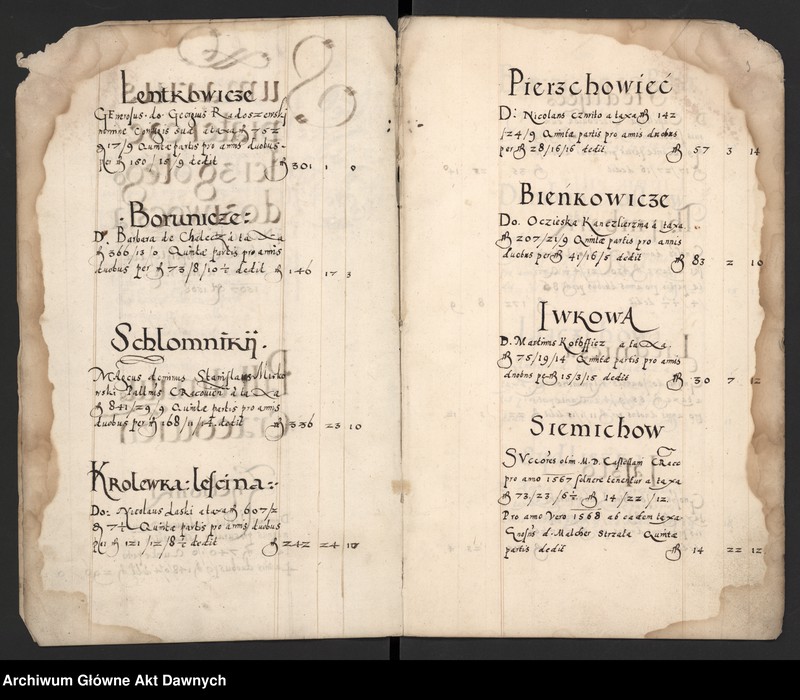 Lentkowicze
Generosus do: Georgius Radoszewski
nomine Coniugis suae a taxa 752
17/9 Quintae partis pro annis duobus
per 150/15/9 dedit 301 1 0
Borunicze:
D. Barbara de Chelecz a taxa
366/13/0 Quintae partis pro annis
duobus per 73/8/10½ dedit 146 17 3
Schlomnikij.
dominus Stanislaus
Cracovien a taxa
841/29/9 Quintae partis pro annis
duobus per 168/11/14 dedit 336 23 10
Krolewka: lescina:
Do: Nicolaus Laski a taxa 607/2
7½ Quintae partis pro annis duobus
per 121/12/8½ dedit 242 24
Pierzchowieć
D: Nicolaus a taxa 142
/24/9 Quintae partis pro annis duobus
per 28/16/16 dedit 57 3 14
Bieńkowicze
Do. Oczieska Kanczlierzina a taxa
207/21/9 Quintae partis pro annis
duobus per 41/16/5 dedit 83 2 10
IwkowA
D. Martinus a taxa
75/19/14 Quintae partis pro annis
duobus per 15/3/15 dedit 30 7 12
Siemichow
Succores olim M. D. Castellani Cracc
pro anno 1567 solvere tenentur a taxa
73/23/6½ 14/22/12.
Pro anno vero 1568 ab eadem taxa
d. Malcher Strzala Quintae
partis dedit 14 22 12
Archiwum Główne Akt Dawnych